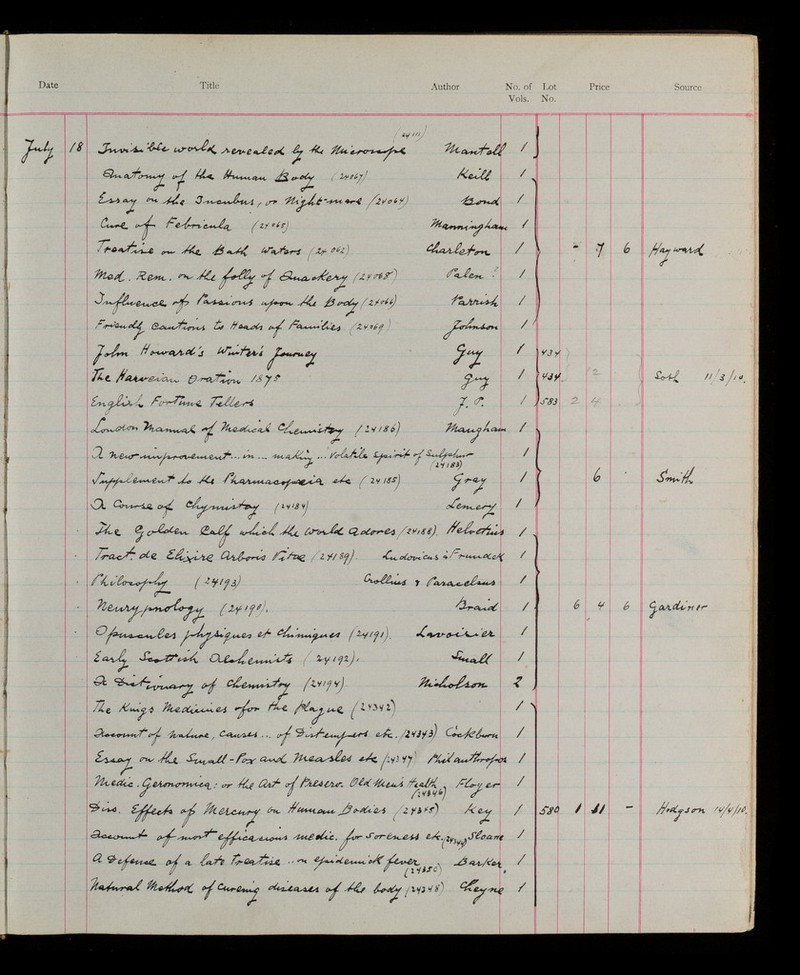 Date Title Author No. of Vols. Lot No. Price Source
July 18 Invisible world revealed by the Microscope (24111) Mantell 1
Anatomy of the Human Body (24067) Keill 1
Essay on the Incubus, or Night-mare (24064) Bond 1
Cure of Febricula (24065) Manningham 1
Treatise on the Bath Waters (24062) Charleton 1 - 7 6 Hayward
Med. Rem. on the folly of Quackery (24068) Palen 1
Influence of Passions upon the Body (24066) Parrish 1
Friendly Cautions to Heads of Families (24069) Johnson 1
John Howard's Winter's Journey Guy 1 434
The Harveian Oration 1875 Guy 1 434 12 Soth 11/3/10.
English Fortune Tellers J. P. 1 583 2 4
London Manual of Medical Chemistry (24186) Maugham 1
A new improvement ... in ... making ... Volatile Spirit of Sulphur (24183) 1
Supplement to the Pharmacopoeia etc (24185) Gray 1 6 Smith
A Course of Chymistry (24184) Lemery 1
The Golden Calf which the World Adores (24188). Helvetius 1
Tract. de Elixire Arboris Vitae (24189). Ludovicus à Frundeck 1
Philosophy (24193) Crollius & Paracelsus 1
Neurypnology (24190). Braid 1 6 4 6 Gardiner
Opuscules physiques et chimiques (24191). Lavoisier 1
Early Scottish Alchemists (24192). Small 1
A Dictionary of Chemistry (24194). Nicholson 2
The Kings Medicines for the Plague (24342) 1
Account of Nature, Causes ... of Distempers etc. (24343) Cockburn 1
Essay on the Small-Pox and Measles etc (24347) Philanthropos 1
Medic. Geronomica: or the Art of Preserv. Old Men's Health (24346) Floyer 1
Diss. Effects of Mercury on Human Bodies (24345) Key 1 580 1 11 - Hodgson 14/4/10.
Account of most efficacious medic. for soreness etc. (24344) Sloane 1
A Defense of a late Treatise .. on epidemick fever Barker, 1
Natural Method of Cureing diseases of the body (24348) Cheyne 1